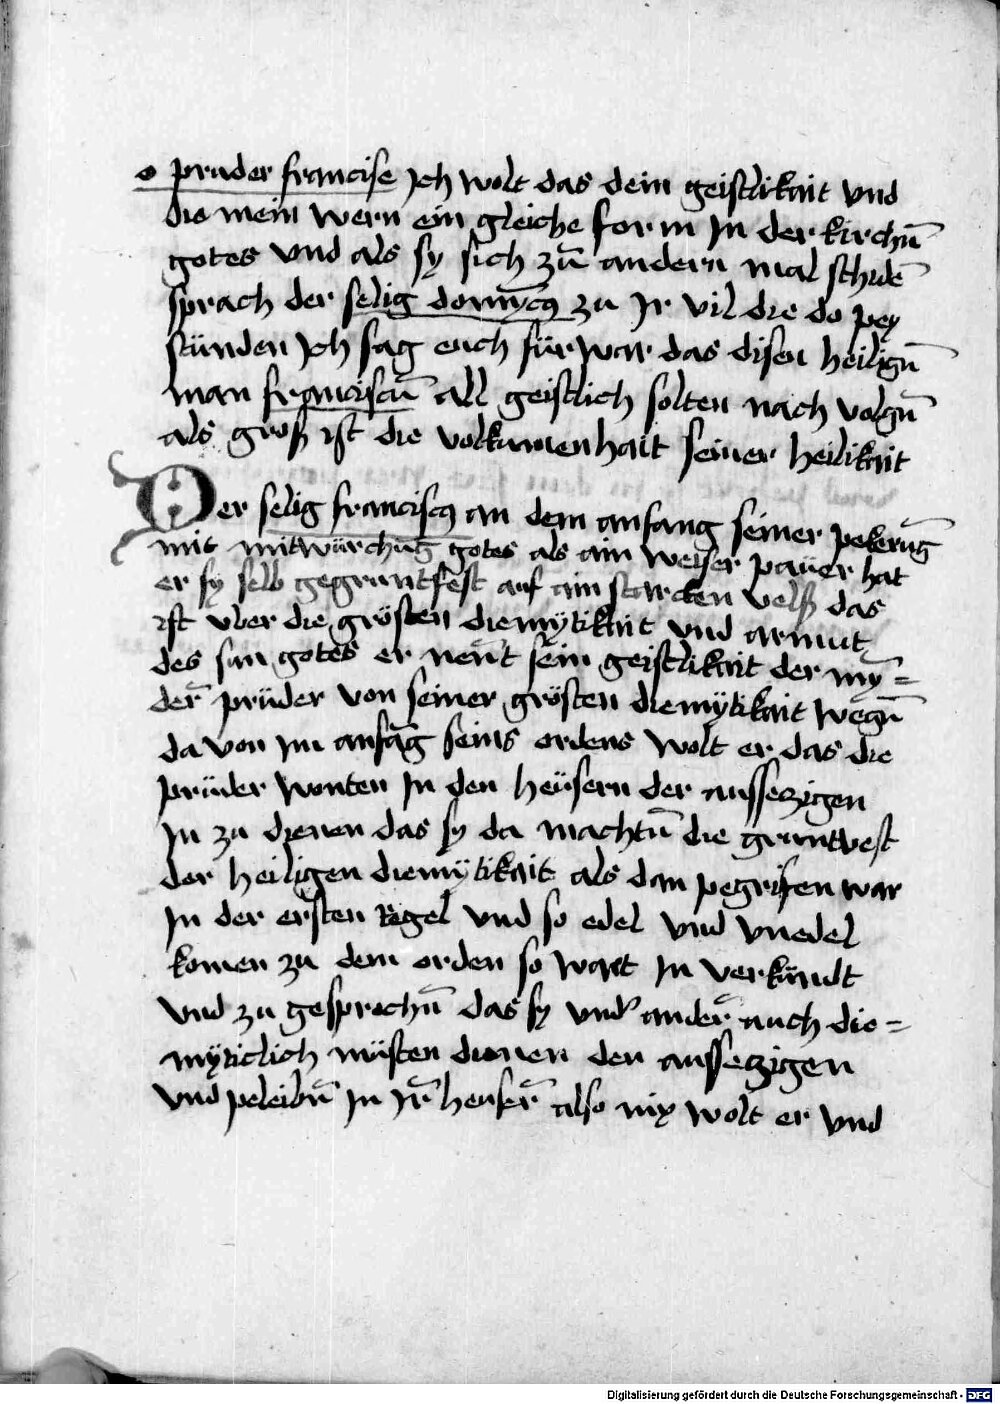 o pruder francise Ich wolt das dein geistlikait vnd
die mein wern ein gleiche form In der kirchn̄
gotes vnd als sy sich zū andern mal schidē
sprach der selig domīcꝯ zu Ir vil die do pey
stúnden Ich sag euch für war das disen heilign̄
man franciscū all geistlich solten nach volgn̄
als groß ist die volkumenhait seiner heilikait
Der selig franciscꝯ an dem anfang seiner pekerūg
mit mitwürchūg gotes als ain weiser paüer hat
er sy selb gegruntfest auf ain starcken velß das
ist vber die grösten diemÿtikait vnd armut
des sun gotes er nen̄t sein geistlikait der mȳ=
der̄ prüder von seiner grösten diemÿtikait wegn̄
da von im anfāg seins ordens wolt er das die
prüder wonten In den heüsern der aussezigen
In zu dienen das sy da machtn̄ die gruntvest
der heiligen diemÿtikait als dan pegrifen war
In der ersten Regel vnd so edel vnd vnedel
komen zu dem orden so wart In verkündt
vnd zu gesprochn̄ das sy vnd' ander̄ auch die=
mÿticlich müsten dienen den aussezigen
vnd peleibn̄ In Ir̄ heuser̄ also nix wolt er vnd
Digitalisierung gefördert durch die Deutsche Forschungsgemeinschaft - DFG